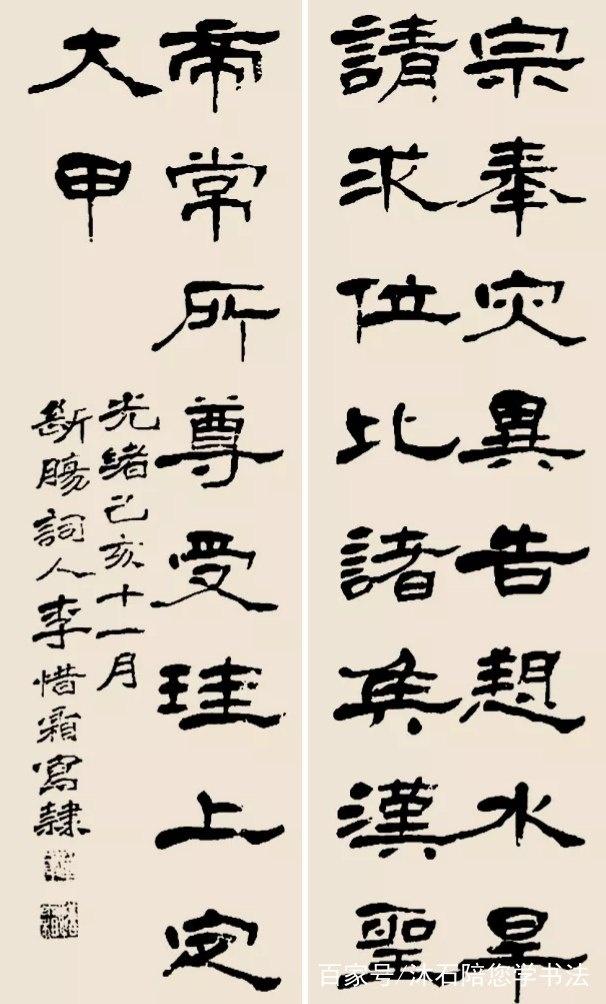 宗奉灾異告愬水旱
請求位比諸侯漢聖
帝常所尊受珪上定
大甲
光緒己亥十一月
斷腸詞人李惜霜寫隸
百家号/沐石陪您学书法